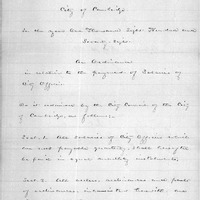 City of Cambridge.
In the year One Thousand Eight Hundred and
Seventy-eight.
An Ordinance
in relation to the payment of Salaries of
City Officers.
Be it ordained by the City Council of the City
of Cambridge, as follows:
Sect. 1. All salaries of City Officers which
are not payable quarterly, shall hereafter
be paid in equal monthly instalments.
Sect. 2. All orders, ordinances and parts
of ordinances, inconsistent herewith, are